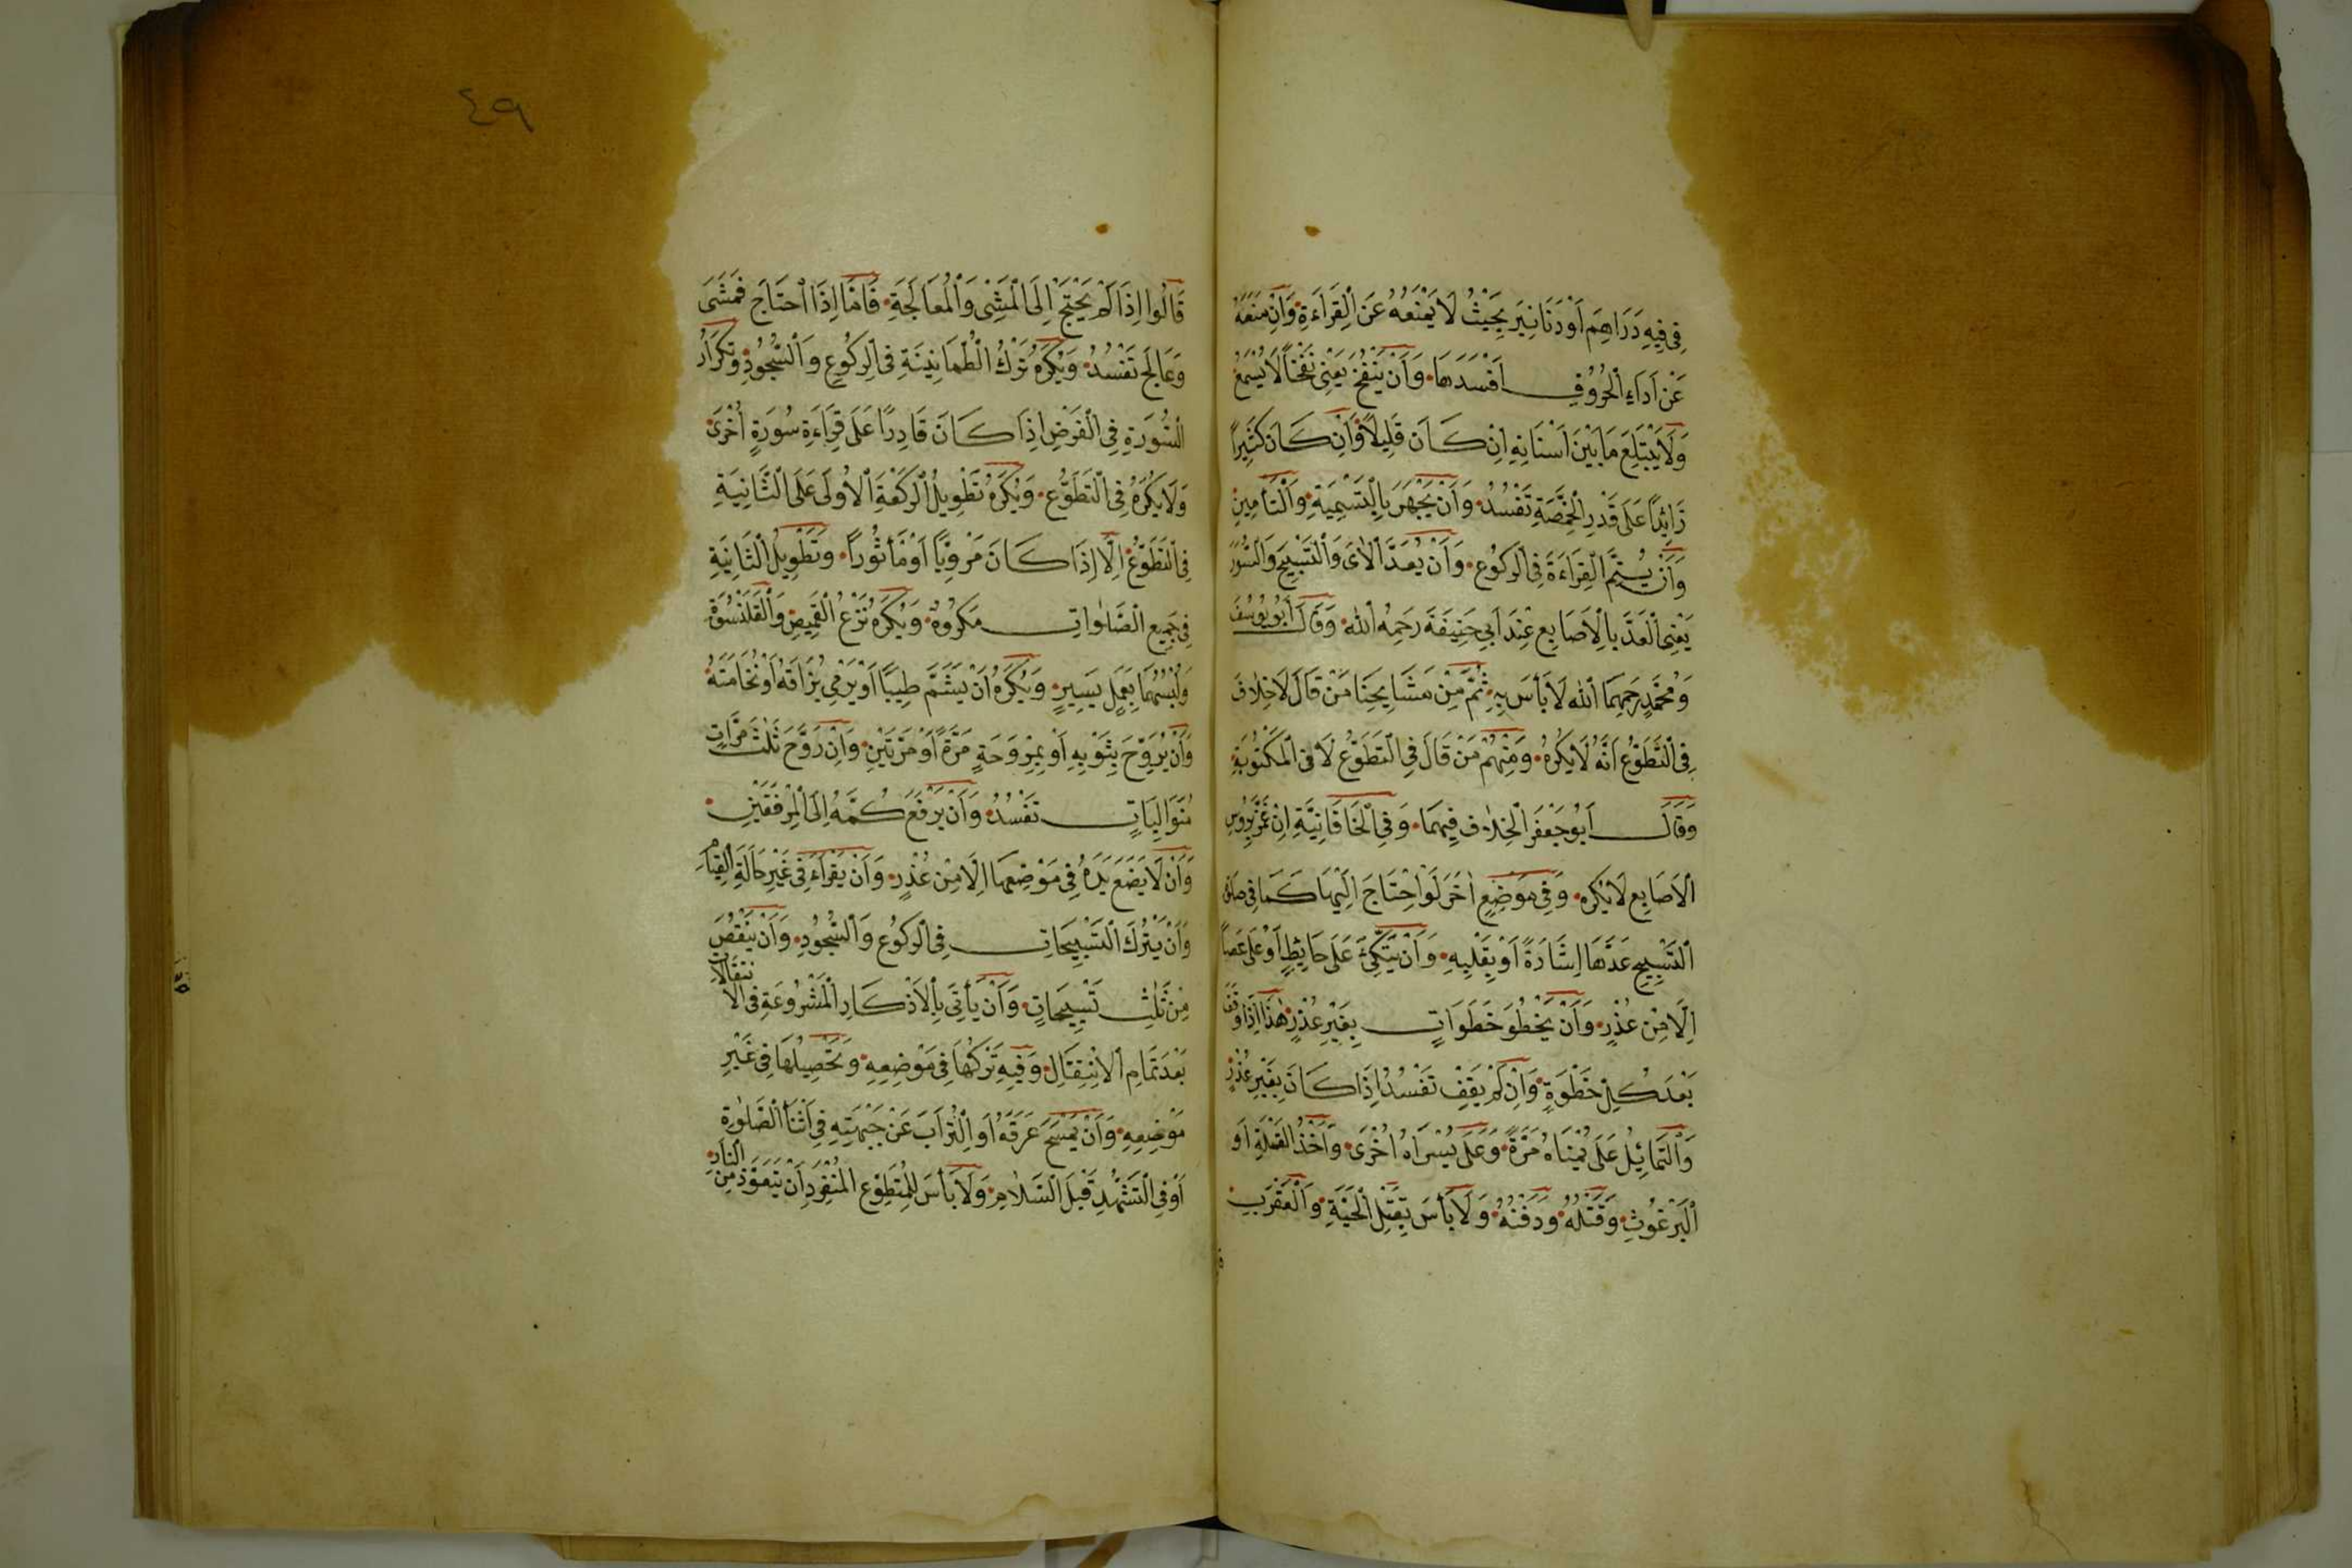 فِي فِيهِ دَرَاهِمَ اَوْ دَنَانِيرَ بِحَيْثُ لَا يَمْنَعُهُ عَنِ الْقِرَاءَةِ وَاِنْ مَنَعَهُ
عَنْ اَدَاءِ الْحُرُوفِ اَفْسَدَهَا وَاَنْ يَنْفُخَ يَعْنِي نَفْخًا لَا يُسْمَعُ
وَلَا يَبْتَلِعَ مَا بَيْنَ اَسْنَانِهِ اِنْ كَانَ قَلِيلًا وَاِنْ كَانَ كَثِيرًا
زَائِدًا عَلَى قَدْرِ الْحِمَّصَةِ تَفْسُدُ وَاَنْ يَجْهَرَ بِالتَّسْمِيَةِ وَالتَّأْمِينِ
وَاَنْ يُتِمَّ الْقِرَاءَةَ فِي الرُّكُوعِ وَاَنْ يَعُدَّ الْاٰىَ وَالتَّسْبِيحَ وَالسُّوَرَ
يَعْنِي الْعَدَّ بِالْاَصَابِعِ عِنْدَ اَبِي حَنِيفَةَ رَحِمَهُ اللهُ وَقَالَ اَبُو يُوسُفَ
وَمُحَمَّدٍ رَحِمَهُمَا اللهُ لَا بَأْسَ بِهِ ثُمَّ مِنْ مَشَايِخِنَا مَنْ قَالَ لَا خِلَافَ
فِي التَّطَوُّعِ اَنَّهُ لَا يُكْرَهُ وَمِنْهُمْ مَنْ قَالَ فِي التَّطَوُّعِ لَا فِي الْمَكْتُوبَةِ
وَقَالَ اَبُو جَعْفَرَ الْخِلَافُ فِيهِمَا وَفِي الْخَاقَانِيَّةِ اِنْ غَمَزَ بِرُؤُسِ
الْاَصَابِعِ لَا يُكْرَهُ وَفِي مَوْضِعٍ اٰخَرَ لَوِ احْتَاجَ اِلَيْهَا كَمَا فِي صَلٰوةِ
التَّسْبِيحِ عَدَّهَا اِشَارَةً اَوْ بِقَلْبِهِ وَاَنْ يَتَّكِئَ عَلَى حَائِطٍ اَوْ عَلَى عَصًا
اِلَّا مِنْ عُذْرٍ وَاَنْ يَخْطُوَ خَطَوَاتٍ بِغَيْرِ عُذْرٍ هٰذَا اِذَا وَقَفَ
بَعْدَ كُلِّ خَطْوَةٍ وَاِنْ لَمْ يَقِفْ تَفْسُدُ اِذَا كَانَ بِغَيْرِ عُذْرٍ
وَالتَّمَايُلُ عَلَى يُمْنَاهُ مَرَّةً وَعَلَى يُسْرَاهُ اُخْرٰى وَاَخْذُ الْقَمْلَةِ اَوِ
الْبَرْغُوثِ وَقَتْلُهُ وَدَفْنُهُ وَلَا بَأْسَ بِقَتْلِ الْحَيَّةِ وَالْعَقْرَبِ
٤٩
قَالُوا اِذَا لَمْ يَحْتَجْ اِلَى الْمَشْيِ وَالْمُعَالَجَةِ فَاَمَّا اِذَا احْتَاجَ فَمَشَى
وَعَالَجَ تَفْسُدُ وَيُكْرَهُ تَرْكُ الطُّمَانِينَةِ فِي الرُّكُوعِ وَالسُّجُودِ وَتَكْرَارُ
السُّورَةِ فِي الْفَرْضِ اِذَا كَانَ قَادِرًا عَلَى قِرَاءَةِ سُورَةٍ اُخْرٰى
وَلَا يُكْرَهُ فِي التَّطَوُّعِ وَيُكْرَهُ تَطْوِيلُ الرَّكْعَةِ الْاُولَى عَلَى الثَّانِيَةِ
فِي التَّطَوُّعِ اِلَّا اِذَا كَانَ مَرْوِيًّا اَوْ مَأْثُورًا وَتَطْوِيلُ الثَّانِيَةِ
فِي جَمِيعِ الصَّلٰوَاتِ مَكْرُوهٌ وَيُكْرَهُ نَزْعُ الْقَمِيصِ وَالْقَلَنْسُوَةِ
وَلُبْسُهُمَا بِعَمَلٍ يَسِيرٍ وَيُكْرَهُ اَنْ يَشَمَّ طِيبًا اَوْ يَرْمِيَ بُزَاقَهُ اَوْ نُخَامَتَهُ
وَاَنْ يُرَوِّحَ بِثَوْبِهِ اَوْ بِمِرْوَحَةٍ مَرَّةً اَوْ مَرَّتَيْنِ وَاِنْ رَوَّحَ ثَلٰثَ مَرَّاتٍ
مُتَوَالِيَاتٍ تَفْسُدُ وَاَنْ يَرْفَعَ كُمَّهُ اِلَى الْمِرْفَقَيْنِ
وَاَنْ لَا يَضَعَ يَدَهُ فِي مَوْضِعِهَا اِلَّا مِنْ عُذْرٍ وَاَنْ يَقْرَاَ فِي غَيْرِ حَالَةِ الْقِيَامِ
وَاَنْ يَتْرُكَ التَّسْبِيحَاتِ فِي الرُّكُوعِ وَالسُّجُودِ وَاَنْ يَنْقُصَ
مِنْ ثَلٰثِ تَسْبِيحَاتٍ وَاَنْ يَأْتِيَ بِالْاَذْكَارِ الْمَشْرُوعَةِ فِي الْاِنْتِقَالَاتِ
بَعْدَ تَمَامِ الْاِنْتِقَالِ وَفِيهِ تَرْكُهَا فِي مَوْضِعِهِ وَتَحْصِيلُهَا فِي غَيْرِ
مَوْضِعِهِ وَاَنْ يَمْسَحَ عَرَقَهُ اَوِ التُّرَابَ عَنْ جَبْهَتِهِ فِي اَثْنَاءِ الصَّلٰوةِ
اَوْ فِي التَّشَهُّدِ قَبْلَ السَّلَامِ وَلَا بَأْسَ لِلْمُتَطَوِّعِ الْمُنْفَرِدِ اَنْ يَتَعَوَّذَ مِنَ النَّارِ